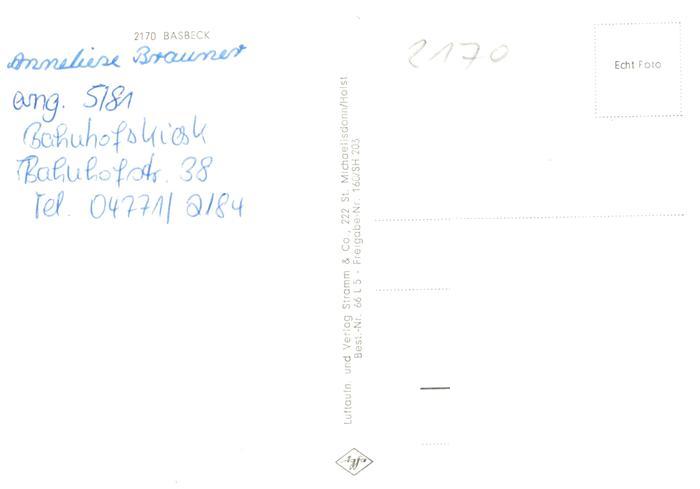 2170 BASBECK
Anneliese Brauner
ang. 5/81
Bahnhofskiosk
Bahnhofstr. 38
Tel. 04771/2184
2170
Echt Foto
Luftaufn. und Verlag Stramm & Co., 222 St. Michaelisdonn/Holst
Best.-Nr. 66 L 5 - Freigabe-Nr. 160/SH 203